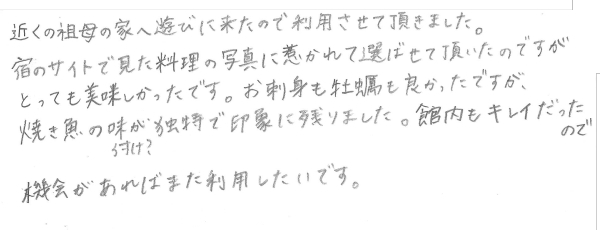 近くの祖母の家へ遊びに来たので利用させて頂きました。
宿のサイトで見た料理の写真に惹かれて選ばせて頂いたのですが
とっても美味しかったです。お刺身も牡蠣も良かったですが、
焼き魚の味が独特で印象に残りました。館内もキレイだった
付け?
ので
機会があればまた利用したいです。